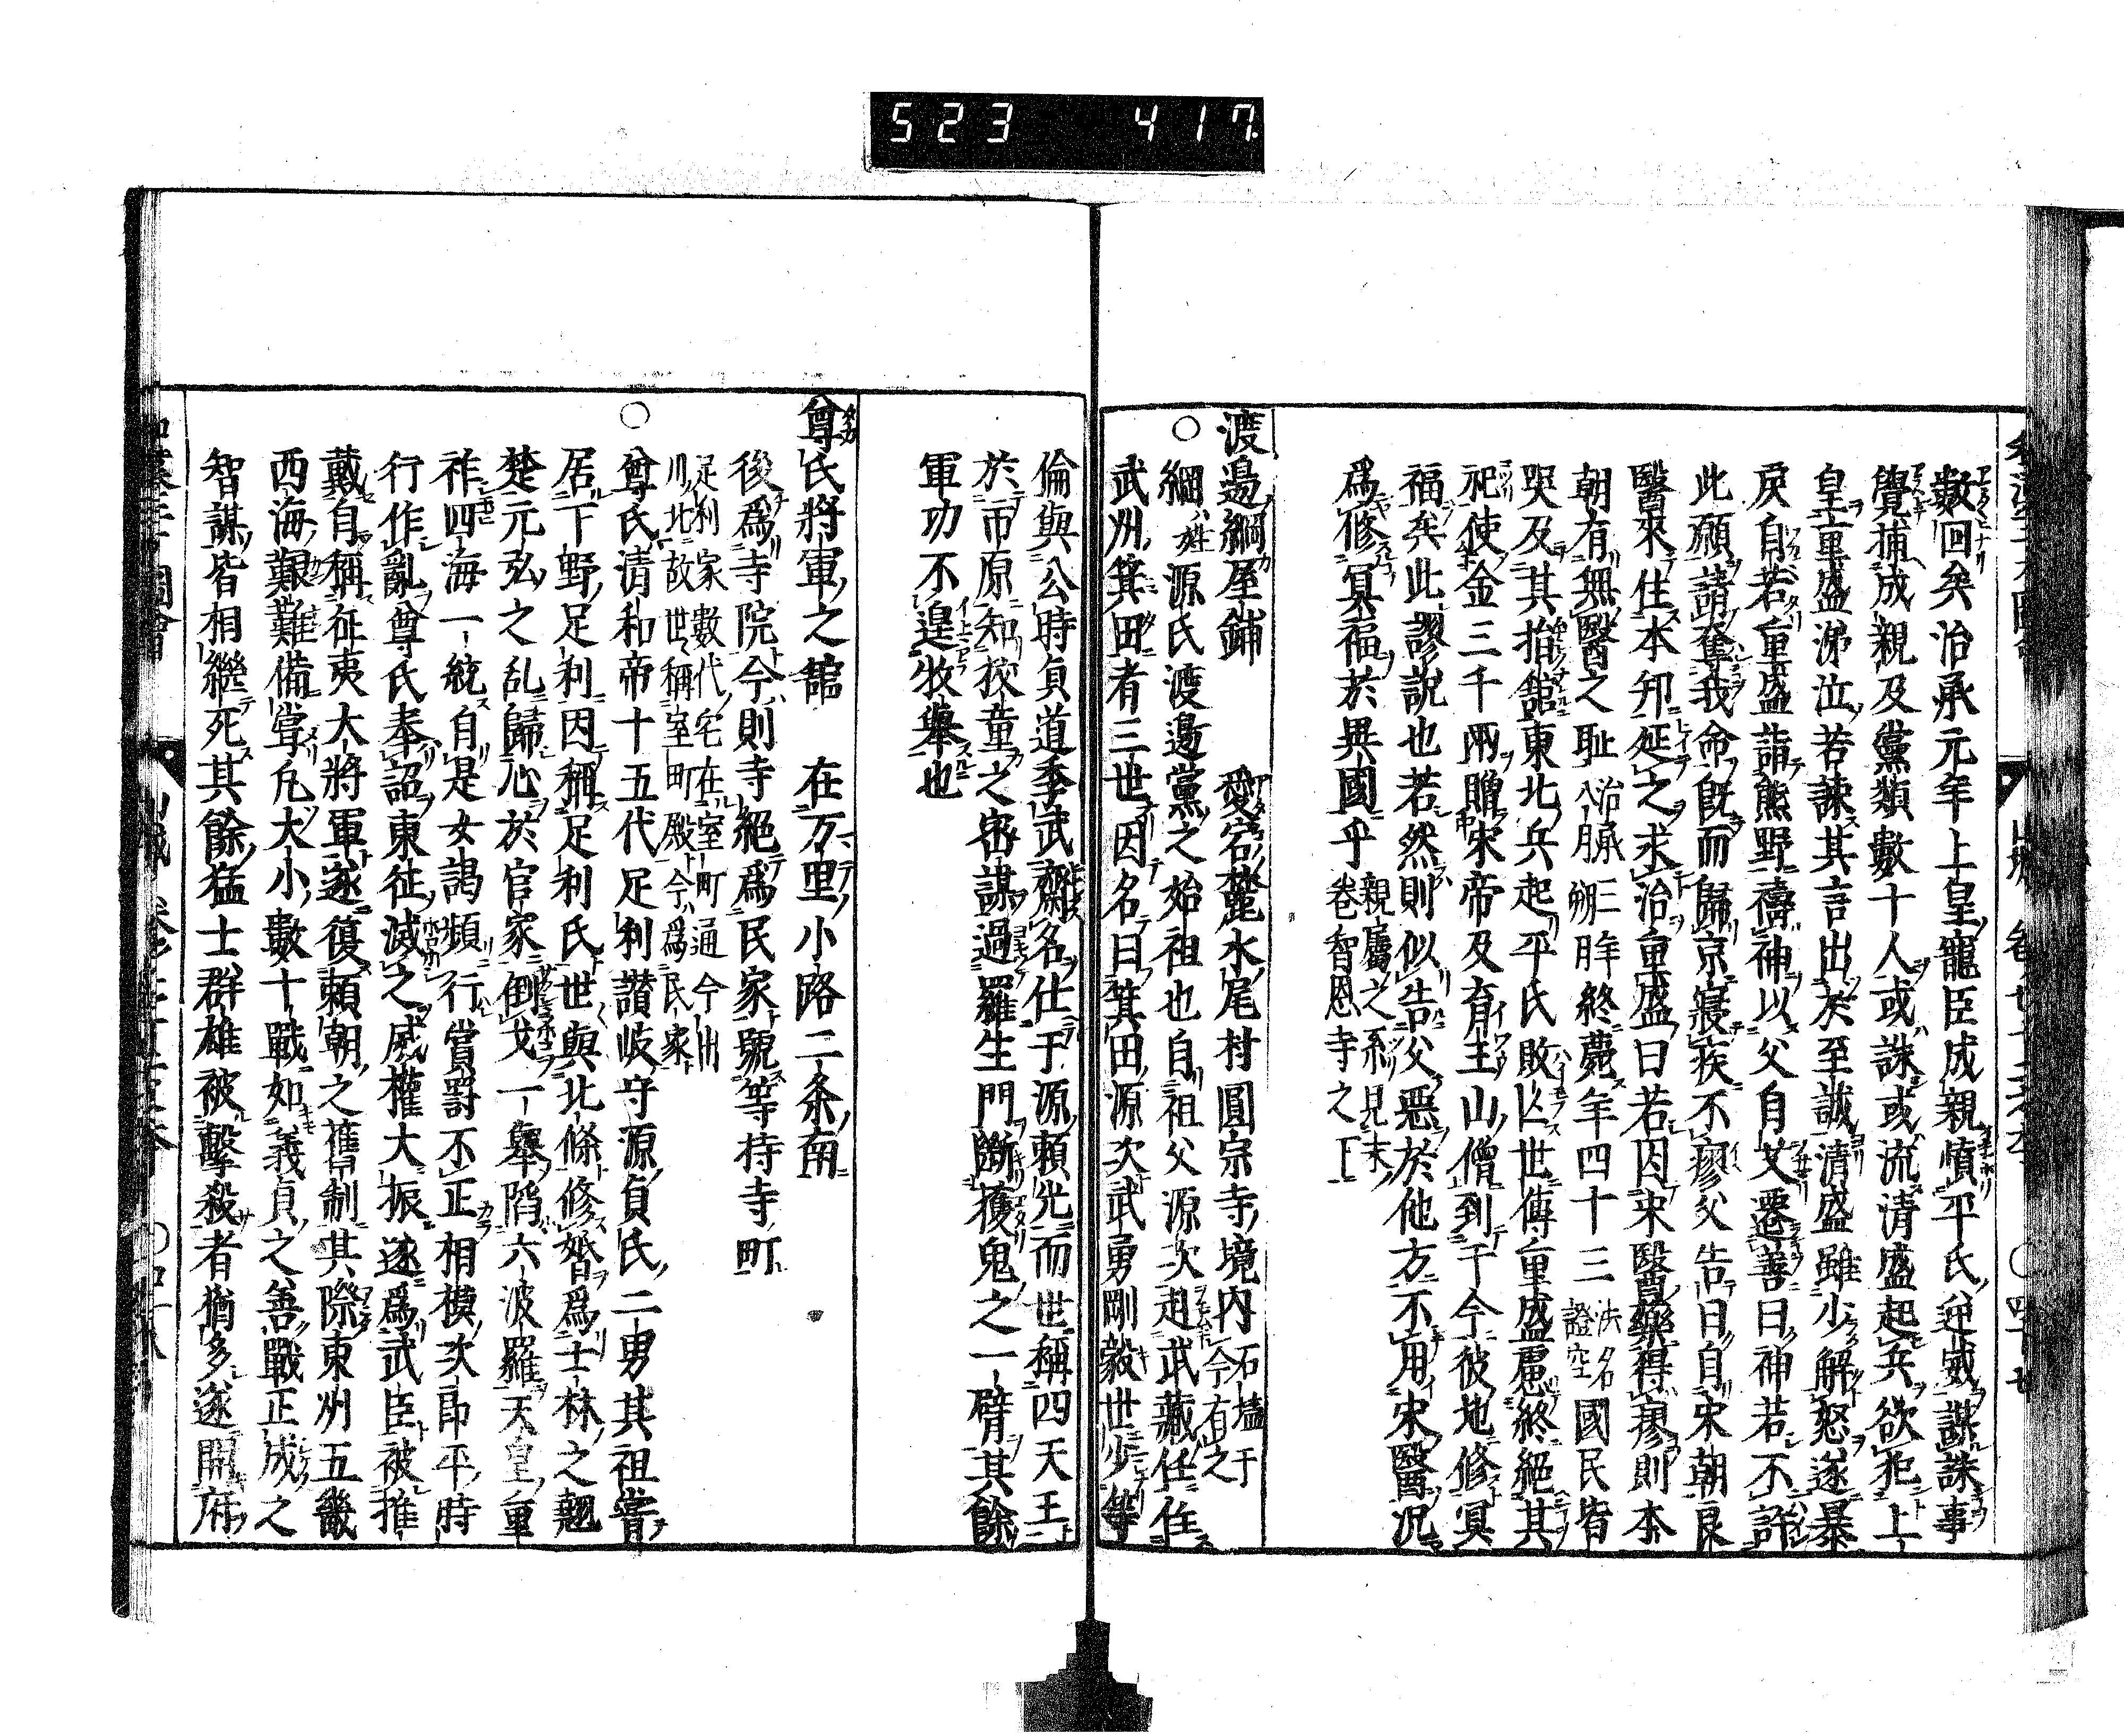 523 417
數回矣治承元年上皇寵臣成親憤平氏逆威謀誅事
覺捕成親及黨類數十人或誅或流清盛起兵欲犯上
皇重盛涕泣苦諫其言出於至誠清盛雖少解怒遂暴
戻自若重盛詣熊野禱神以父自艾遷善曰神若不許
此願請奪我命既而歸京寢疾不瘳父告曰自宋朝良
醫來住本邦延之求治重盛曰若因宋醫藥得瘳則本
朝有無醫之耻治承三年八月朔終薨年四十三法名證空國民皆
哭及其指舘東北兵起平氏敗亡世傳重盛慮終絕其
祀使金三千兩贈宋帝及育王山僧到于今彼地修冥
福矣此謬說也若然則似告父惡於他方不用宋醫況
爲修冥福於異國乎親屬之系見末卷智恩寺之下
渡邉綱屋鋪　愛宕麓水尾村圓宗寺境内石塔于今有之
○綱姓源氏渡邉黨之始祖也自祖父源次赴武藏任住
武州箕田者三世因名曰箕田源次武勇剛毅世少等
倫與公時貞道季武齊名仕于源賴光而世稱四天王
於市原知狡童之密謀過羅生門斷獲鬼之一臂其餘
軍功不遑牧舉也
尊氏將軍之舘　在万里小路二条南
後爲寺院今則寺絕爲民家號等持寺町
足利家數代宅在室町通今出
川北故世稱室町殿今爲民家
○尊氏清和帝十五代足利讃岐守源貞氏二男其祖嘗
居下野足利因稱足利氏世與北條修婚爲士林之翹
楚元弘之乱歸心於官家倒戈一舉陷六波羅天皇重
祚四海一統自是女謁頻行賞罸不正相模次郎平時
行作亂尊氏奉詔東征滅之威權大振遂爲武臣被推
戴自稱征夷大將軍遂復賴朝之舊制其際東州五畿
西海艱難備嘗凡大小數十戰如義貞之善戰正成之
智謀皆相繼死其餘猛士群雄被擊殺者猶多遂開府